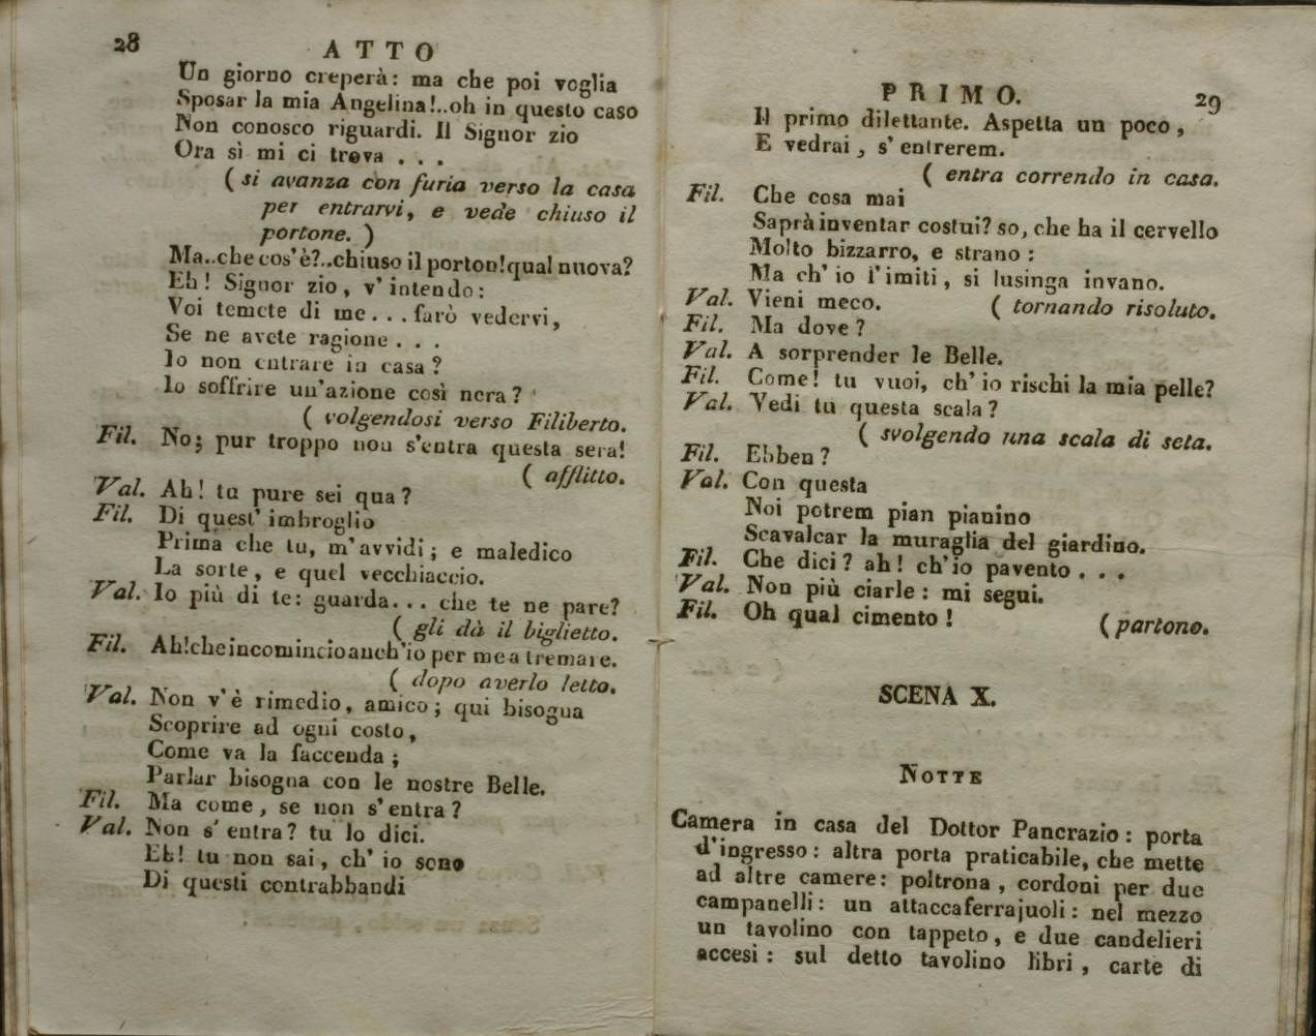 28
ATTO
Un giorno creperà: ma che poi voglia
Sposar la mia Angelina!..oh in questo caso
Non conosco riguardi. Il Signor zio
Ora sì mi ci trova . . .
( si avanza con furia verso la casa
per entrarvi, e vede chiuso il
portone. )
Ma..che cos'è?..chiuso il porton!qual nuova?
Eh! Signor zio, v'intendo:
Voi temete di me... farò vedervi,
Se ne avete ragione . . .
Io non entrare in casa?
Io soffrire un'azione così nera?
( volgendosi verso Filiberto.
Fil. No; pur troppo non s'entra questa sera!
( afflitto.
Val. Ah! tu pure sei qua?
Fil. Di quest' imbroglio
Prima che tu, m'avvidi; e maledico
La sorte, e quel vecchiaccio.
Val. Io più di te: guarda... che te ne pare?
( gli dà il biglietto.
Fil. Ah!che incomincio anch'io per me a tremare.
( dopo averlo letto.
Val. Non v'è rimedio, amico; qui bisogna
Scoprire ad ogni costo,
Come va la faccenda;
Parlar bisogna con le nostre Belle.
Fil. Ma come, se non s'entra?
Val. Non s'entra? tu lo dici.
Eh! tu non sai, ch' io sono
Di questi contrabbandi
PRIMO.
29
Il primo dilettante. Aspetta un poco,
E vedrai, s'entrerem.
( entra correndo in casa.
Fil. Che cosa mai
Saprà inventar costui? so, che ha il cervello
Molto bizzarro, e strano:
Ma ch' io l'imiti, si lusinga invano.
Val. Vieni meco. ( tornando risoluto.
Fil. Ma dove?
Val. A sorprender le Belle.
Fil. Come! tu vuoi, ch' io rischi la mia pelle?
Val. Vedi tu questa scala?
( svolgendo una scala di seta.
Fil. Ebben?
Val. Con questa
Noi potrem pian pianino
Scavalcar la muraglia del giardino.
Fil. Che dici? ah! ch'io pavento . . .
Val. Non più ciarle: mi segui.
Fil. Oh qual cimento! ( partono.
SCENA X.
NOTTE
Camera in casa del Dottor Pancrazio: porta
d'ingresso: altra porta praticabile, che mette
ad altre camere: poltrona, cordoni per due
campanelli: un attaccaferrajuoli: nel mezzo
un tavolino con tappeto, e due candelieri
accesi: sul detto tavolino libri, carte di